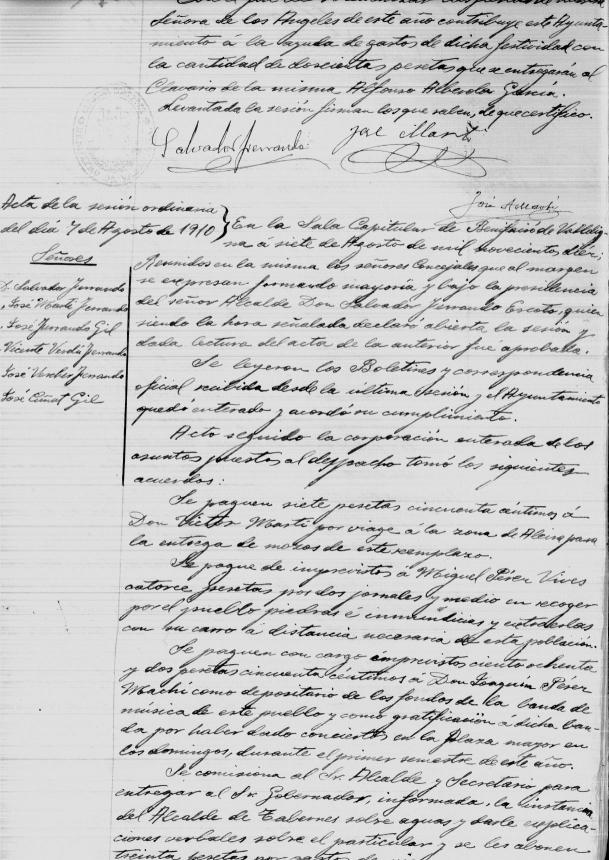 Señora de los Angeles de este año contribuye este Ayunta-
miento á la ayuda de gastos de dicha festividad con
la cantidad de doscientas pesetas que se entregarán al
Clavario de la misma Alfonso Alberola García.
Levantada la sesión firman los que saben, de que certifico.
Salvador Ferrando José Martí
José
Acta de la sesión ordinaria
del dia 7 de Agosto de 1910
Señores
D. Salvador Ferrando
" José Martí Ferrando
" José Ferrando Gil
Vicente Verdú Ferrando
José Verches Ferrando
José Cuñat Gil
En la Sala Capitular de Benifairó de Valldig-
na á siete de Agosto de mil novecientos diez;
Reunidos en la misma los señores Concejales que al margen
se expresan formando mayoría y bajo la presidencia
del señor Alcalde Don Salvador Ferrando Escoto, quien
siendo la hora señalada declaró abierta la sesión y
dada lectura del acta de la anterior fué aprobada.
Se leyeron los Boletines y correspondencia
oficial recibida desde la última sesión y el Ayuntamiento
quedó enterado y acordó su cumplimiento.
Acto seguido la corporación enterada de los
asuntos puestos al despacho tomó los siguientes
acuerdos:
Se paguen siete pesetas cincuenta céntimos á
Don Victor Martí por viage á la zona de Alcira para
la entrega de mozos de este reemplazo.
Se pague de imprevistos á Miguel Pérez Vives
catorce pesetas por dos jornales y medio en recoger
por el pueblo piedras é inmundicias y extraerlas
con su carro á distancia necesaria de esta población.
Se paguen con cargo imprevistos ciento ochenta
y dos pesetas cincuenta céntimos á Don Joaquín Pérez
Machí como depositario de los fondos de la banda de
música de este pueblo y como gratificación á dicha ban-
da por haber dado conciertos en la plaza mayor en
los domingos, durante el primer semestre de este año.
Se comisiona al Sr. Alcalde y Secretario para
entregar al Sr. Gobernador, informada, la instancia
del Alcalde de Tabernes sobre aguas y darle explica-
ciones verbales sobre el particular y se les abonen
treinta pesetas por gastos de